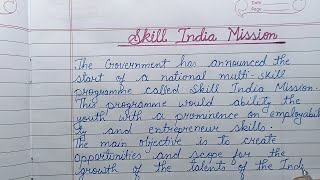 Skill India Mission
The Government has announced the
start of a national multi-skill
programme called Skill India Mission.
This programme would ability the
youth with a prominence on employabil
ty and entrepreneur skills.
The main objective is to create
opportunities and scope for the
growth of the talents of the Ind